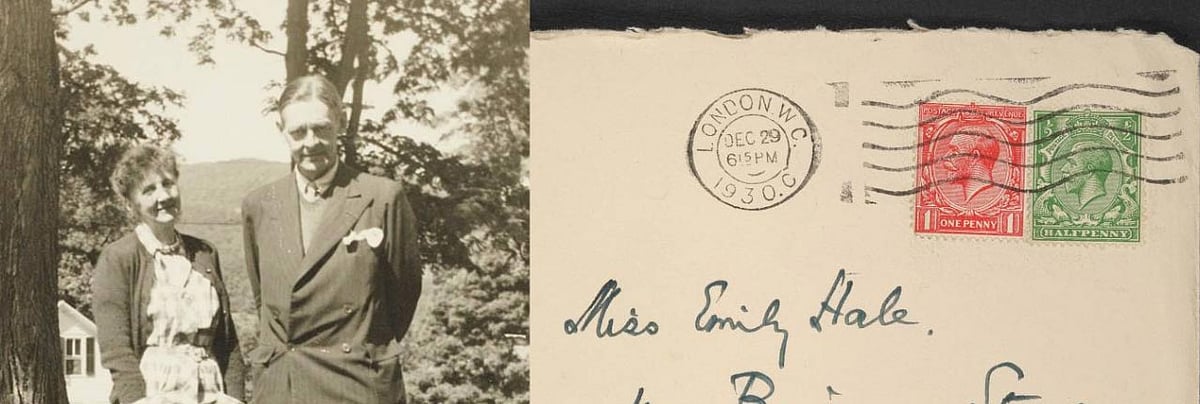 LONDON.W.C.
DEC 29
6 15 PM
1930.C
POSTAGE REVENUE
1 ONE PENNY 1
HALFPENNY
Miss Emily Hale.